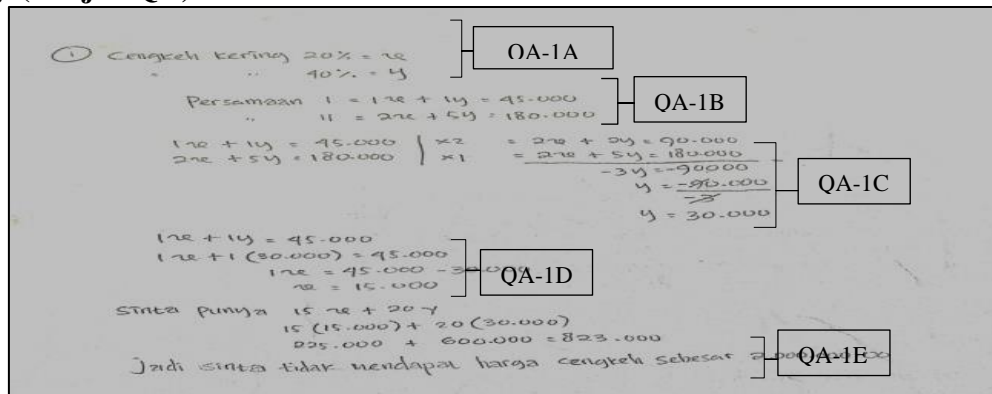 ① Cengkeh kering 20% = x
" " 40% = y
QA-1A
Persamaan I = 1x + 1y = 45.000
" II = 2x + 5y = 180.000
QA-1B
1x + 1y = 45.000 | x2 = 2x + 2y = 90.000
2x + 5y = 180.000 | x1 = 2x + 5y = 180.000 -
-3y = -90000
y = -90.000
-3
y = 30.000
QA-1C
1x + 1y = 45.000
1x + 1 (30.000) = 45.000
1x = 45.000 - 30.000
x = 15.000
QA-1D
Sinta punya 15 x + 20 y
15 (15.000) + 20 (30.000)
225.000 + 600.000 = 823.000
Jadi sinta tidak mendapat harga cengkeh sebesar
QA-1E